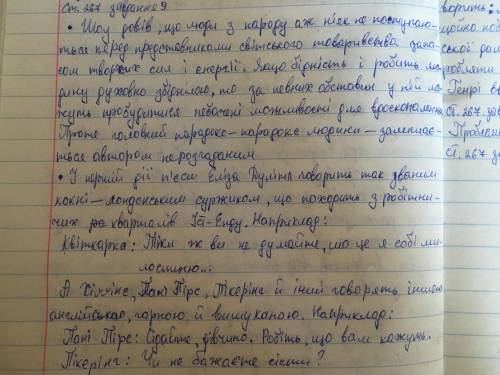 Ст. 267 завдання 9
• Шоу довів, що люди з народу аж ніяк не поступаю-
ться перед представниками світського товариства запа-
сом творчих сил і енергії. Якщо бідність і робить лю-
дину духовно збіднілою, то за певних обставин у ній мо-
жуть пробудитися небачені можливості для вдосконалення
Проте головний парадокс – парадокс людини – залишає-
ться автором нерозгаданим
• У першій дії п'єси Еліза Дулітл говорить так званим
кокні – лондонським суржиком, що походить з робітни-
чих кварталів Іст-Енду. Наприклад:
Квіткарка: Тіки ж ви не думайте, шо це я собі ми-
лостиню...
А Хіггінс, Пані Пірс, Пікерінг й інші говорять іншою
англійською, гарною й вишуканою. Наприклад:
Пані Пірс: Сідайте, дівчино. Робіть, що вам кажуть.
Пікерінг: Чи не бажаєте сісти?
ворить:
Генрі
Ст. 267
Ст. 267